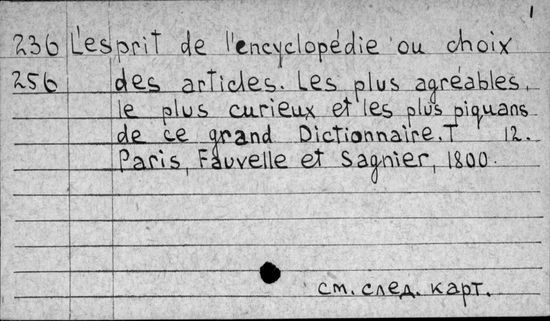 1
236 L'esprit de l'encyclopédie ou choix
256 des articles. Les plus agréables,
le plus curieux et les plus piquans
de ce grand Dictionnaire. T 12.
Paris, Fauvelle et Sagnier, 1800.
см. след. карт.